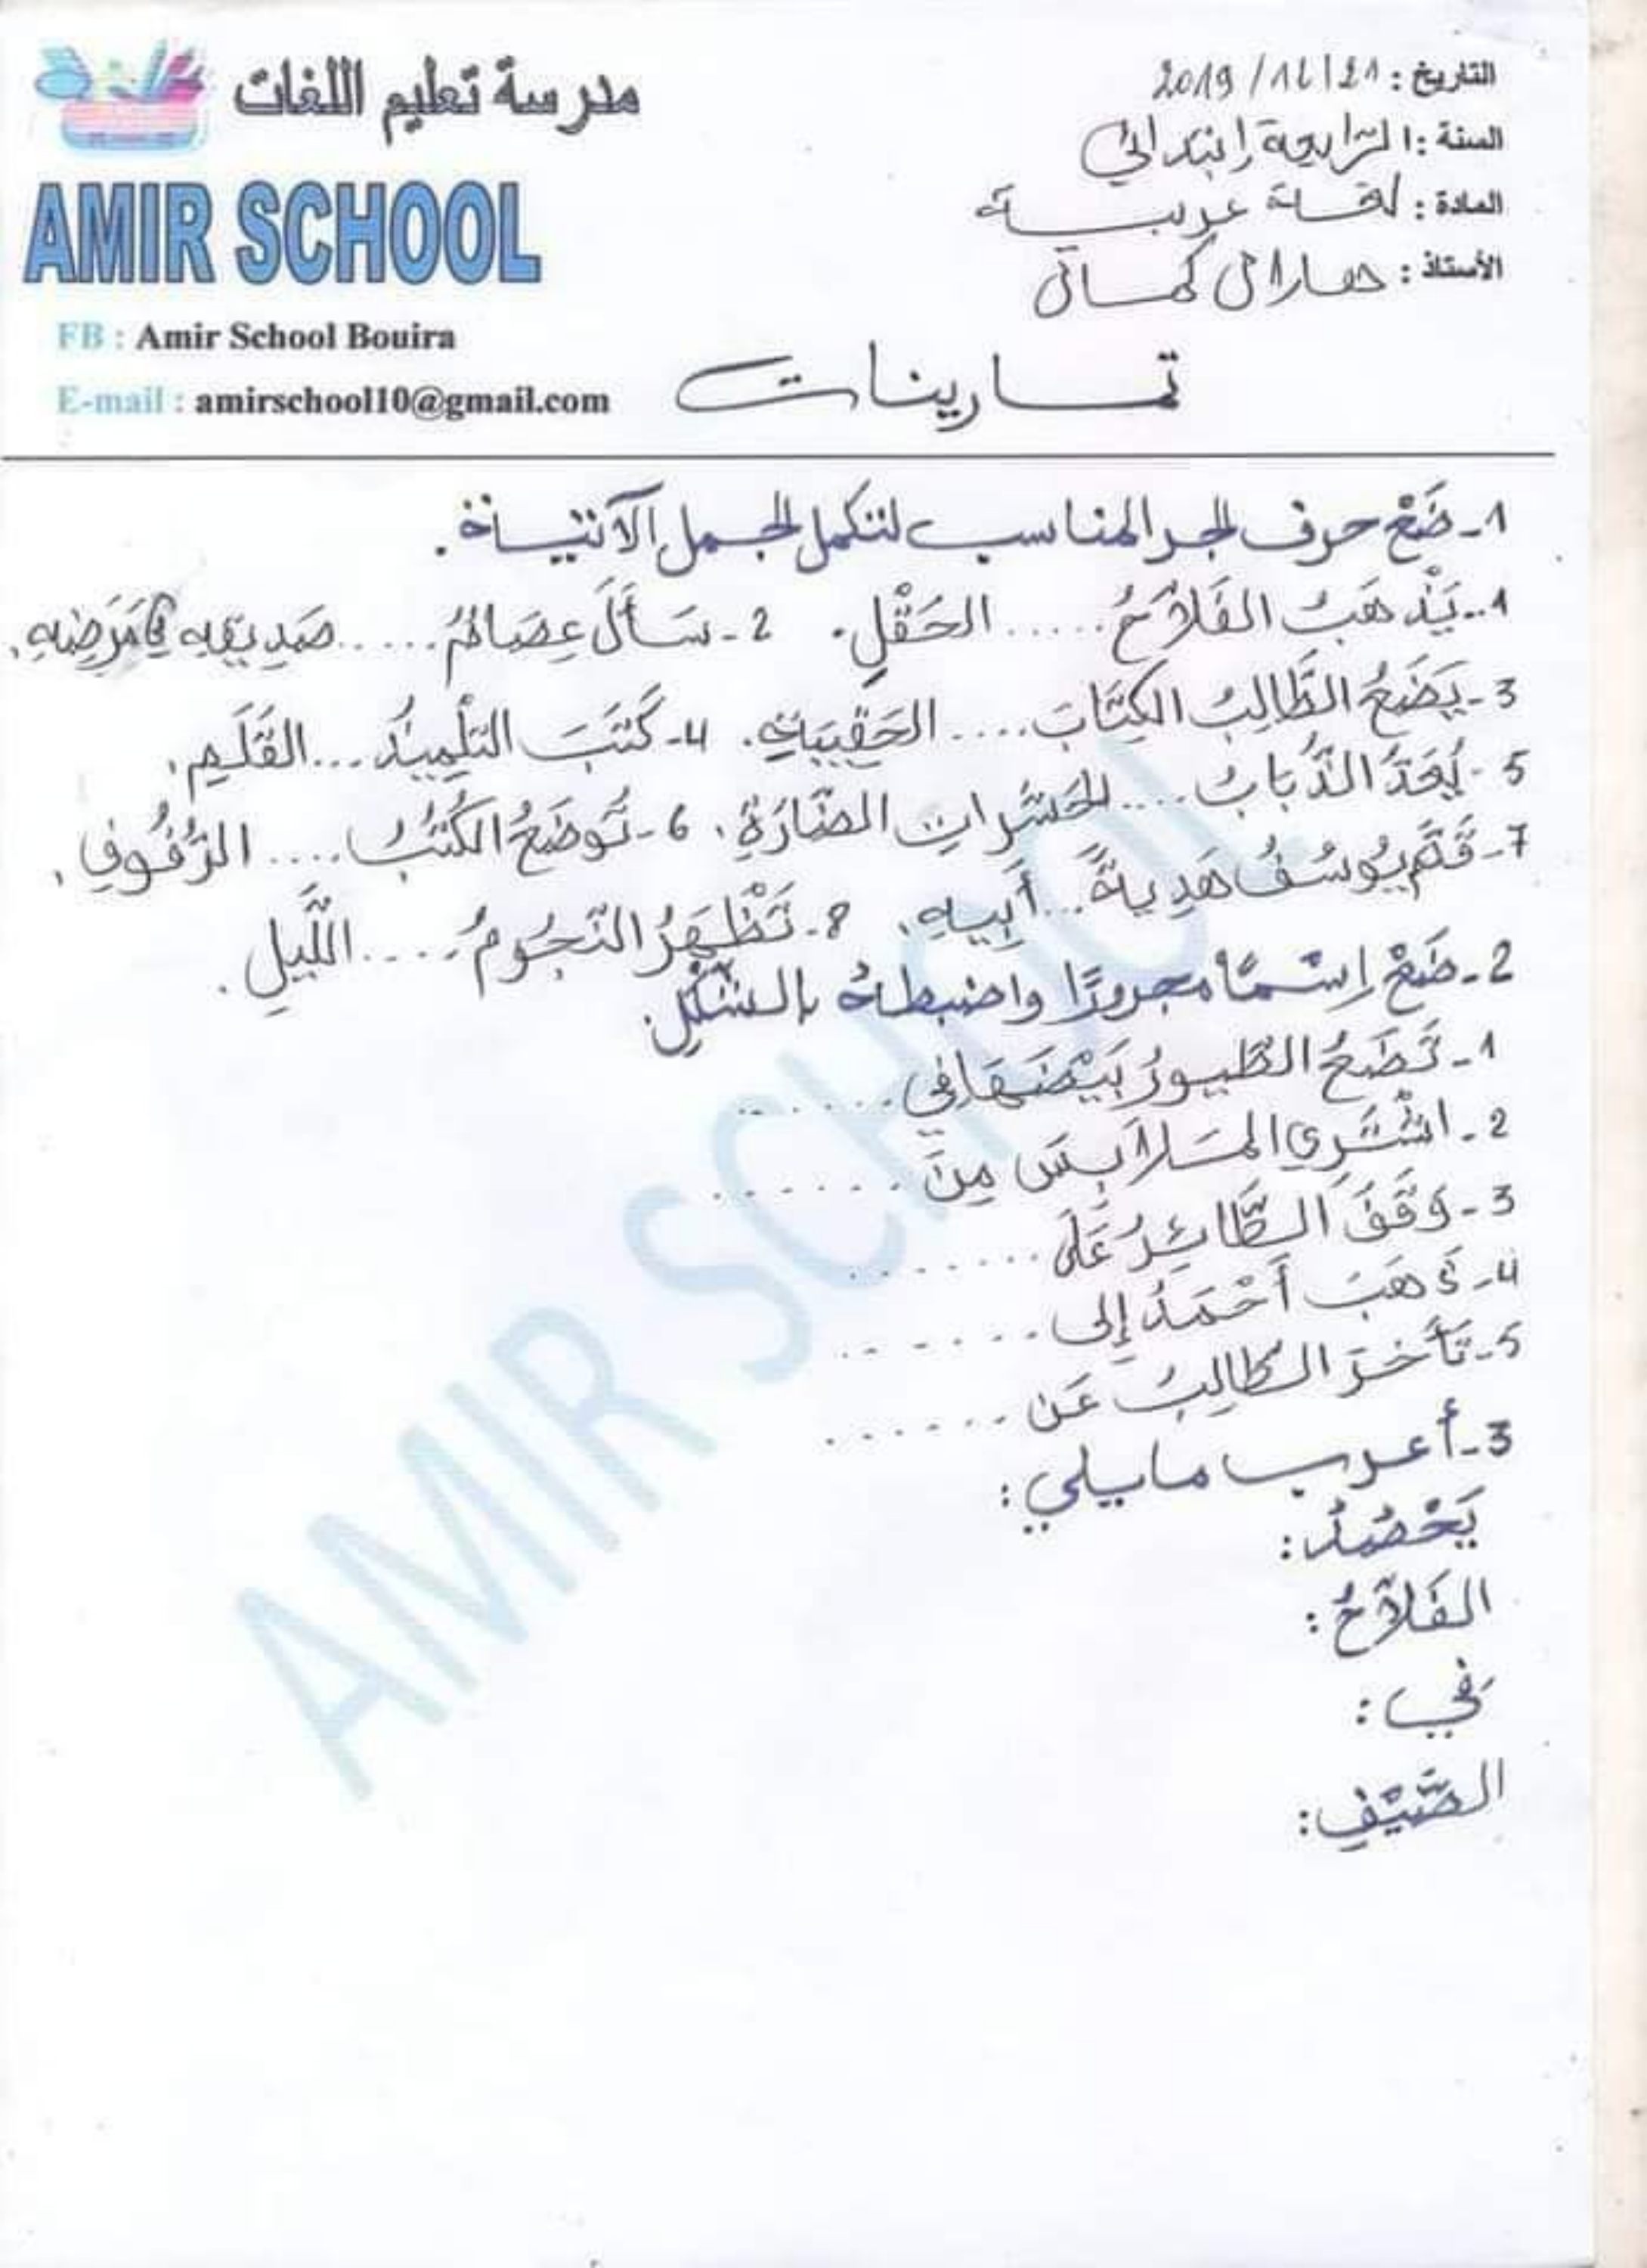 مدرسة تعليم اللغات
AMIR SCHOOL
FB : Amir School Bouira
E-mail : amirschool10@gmail.com
التاريخ : 21/12/2019
السنة : الرابعة إبتدائي
المادة : لغة عربية
الأستاذ :
تمارينات
1- ضَعْ حرف الجر المناسب لتكمل الجمل الآتية.
1- يَذْهَبُ الفَلاَّحُ ...... الحَقْلِ. 2- سَأَلَ عِصَامُ ...... صَدِيقِهِ في مَرَضِهِ.
3- يَضَعُ الطَّالِبُ الكِتَابَ .... الحَقِيبَةِ. 4- كَتَبَ التِلْمِيذُ ... القَلَمِ.
5- يُعَدُّ الذُّبَابُ .... الحَشَرَاتِ الضَّارَةِ. 6- تُوضَعُ الكُتُبُ .... الرُّفُوفِ.
7- قَدَّمَ يُوسُفُ هَدِيةً ... أَبِيهِ. 8- تَظْهَرُ النُّجُومُ ..... اللَّيلِ.
2- ضَعْ إسْمًا مجرورًا واضبطهُ بالشَّكْلِ.
1- تَضَعُ الطُّيورُ بَيْضَهَا فِي ......
2- اشْتَرِي المَلاَبِسَ مِنَ .......
3- وَقَفَ الطَّائِرُ عَلَى ........
4- ذَهَبَ أَحْمَدُ إِلى .......
5- تَأَخَرَ الطَالِبُ عَن .......
3- أعرب ما يلي :
يَحْصُدُ :
الفَلاَّحُ :
في :
الصَّيْفِ :
AMIR SCHOOL